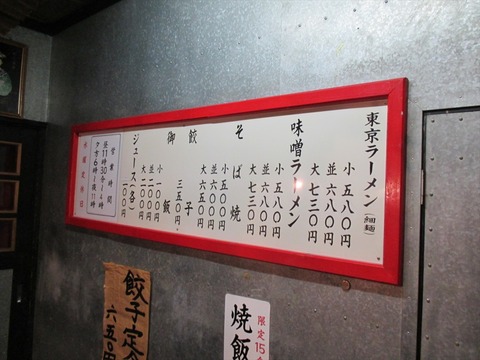 東京ラーメン(細麺)
小 五八〇円
並 六八〇円
大 七三〇円
味噌ラーメン
小 五八〇円
並 六八〇円
大 七三〇円
そば焼
小 五八〇円
並 六〇〇円
大 六五〇円
餃子
三五〇円
御飯
小 一〇〇円
並 二〇〇円
大 二〇〇円
ジュース(各)
二〇〇円
営業時間
昼11時30分〜4時
夕方6時〜夜11時
水曜定休日
餃子定食
六五〇円
限定15食
焼飯